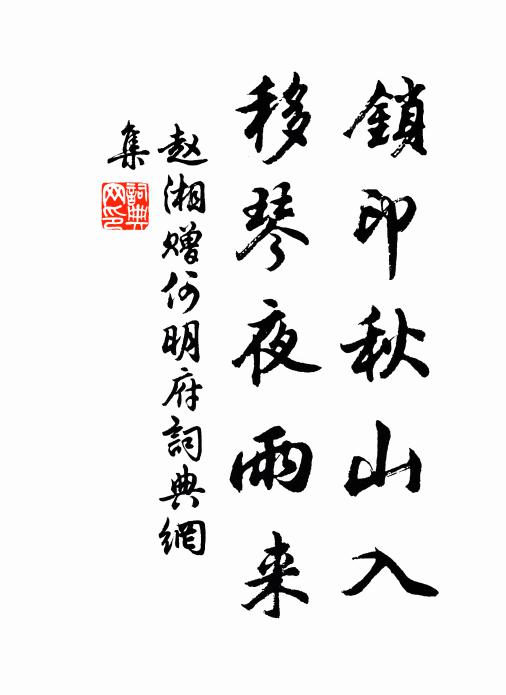 鎖印秋山入
移琴夜雨来
赵湘赠何明府詞典網
集
詞典网印